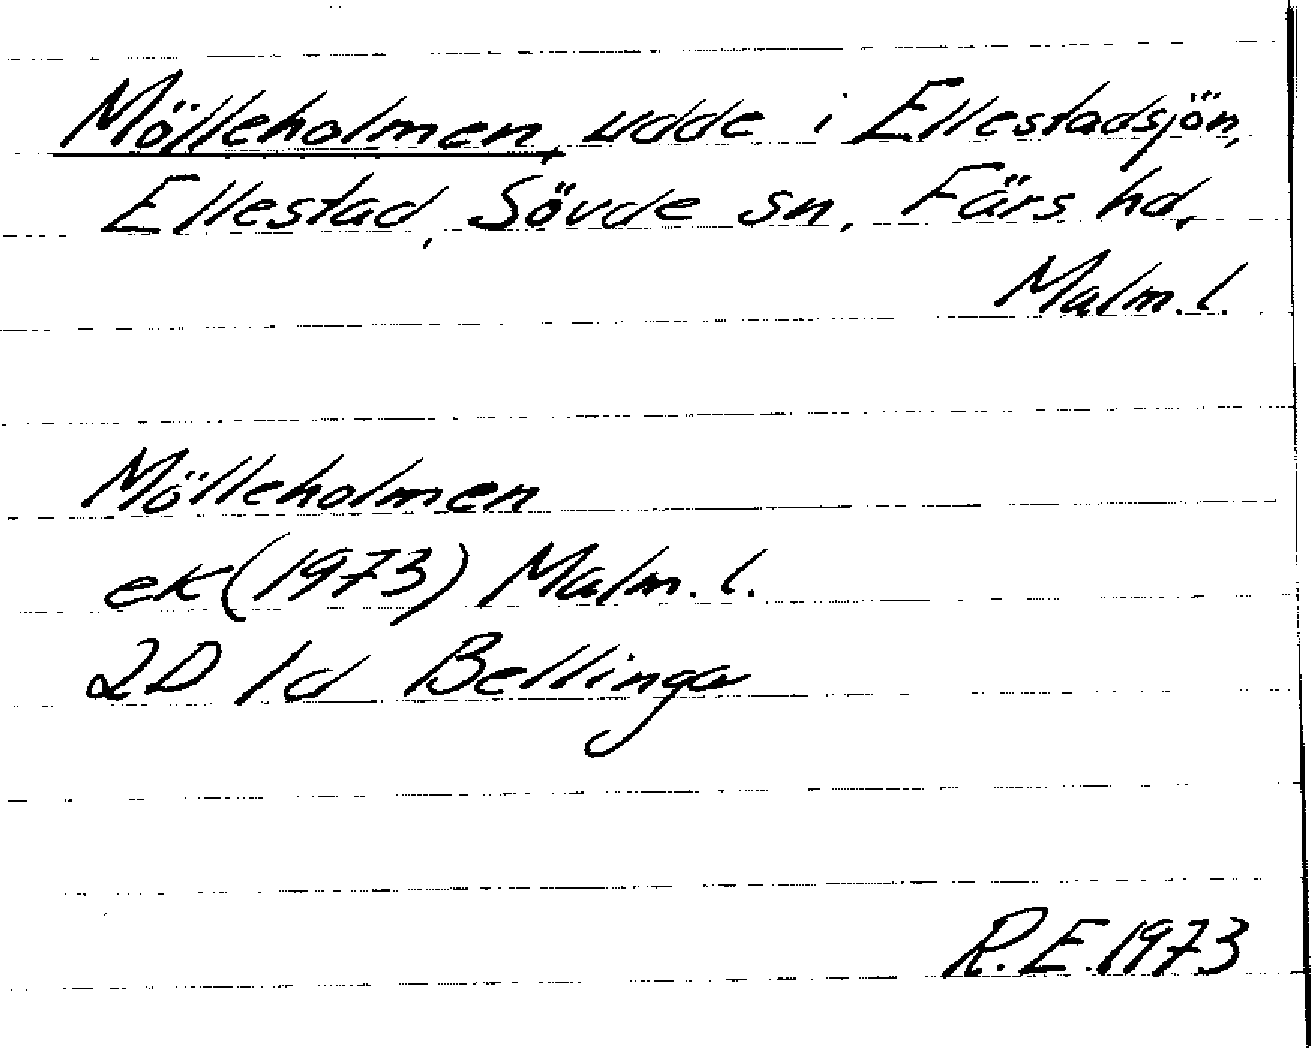 Mölleholmen, udde i Ellestadsjön,
Ellestad, Sövde sn, Färs hd,
Malm. l.
Mölleholmen
ek (1973) Malm. l.
2D 1d Bellinga
R.E. 1973